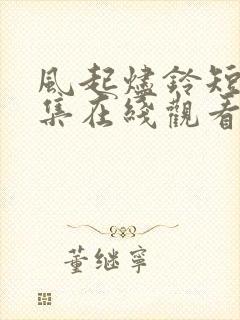 風起燼鈴短
集在綫觀看
董繼寧